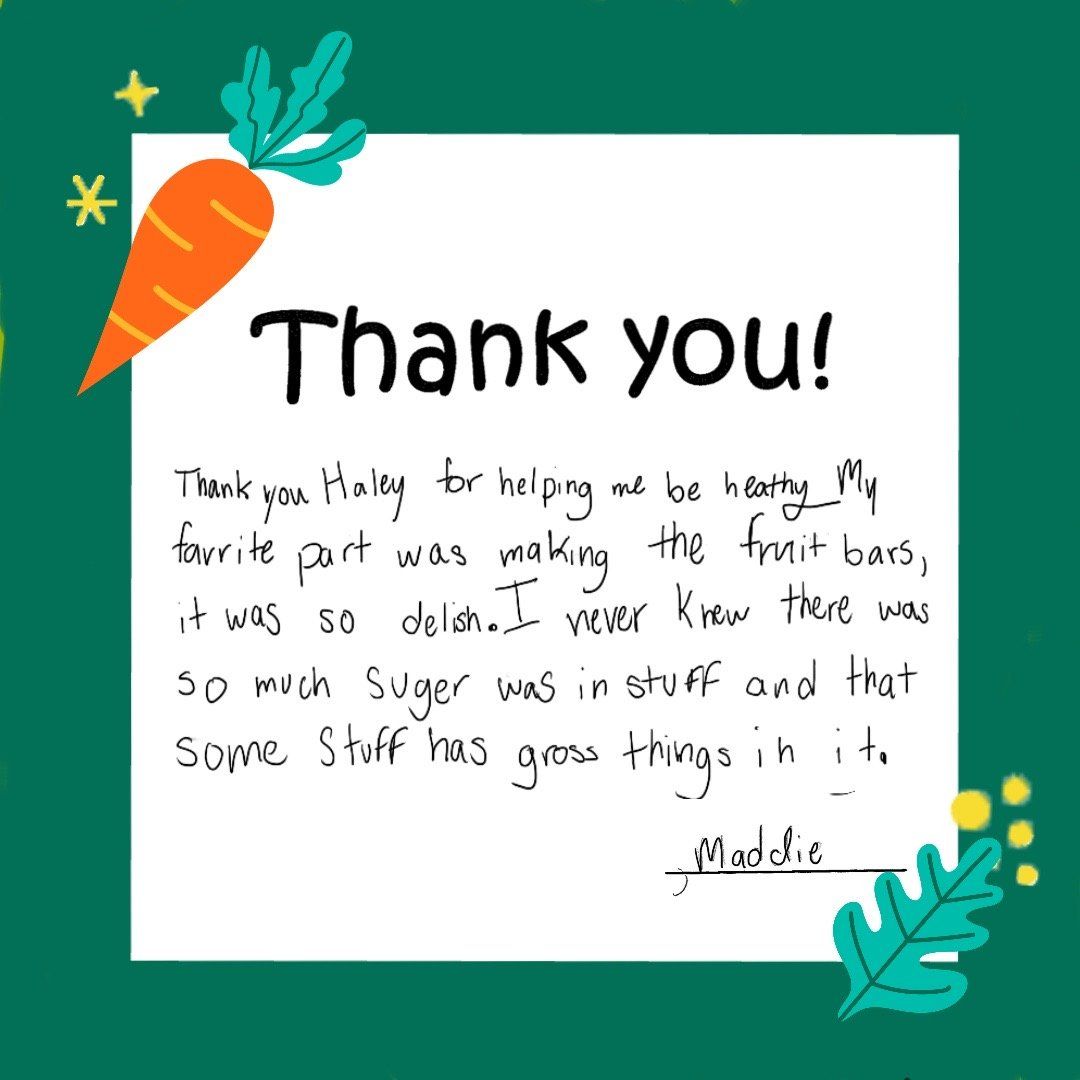 Thank you!
Thank you Haley for helping me be heathy My
favrite part was making the fruit bars,
it was so delish. I never knew there was
so much suger was in stuff and that
some stuff has gross things in it.
Maddie